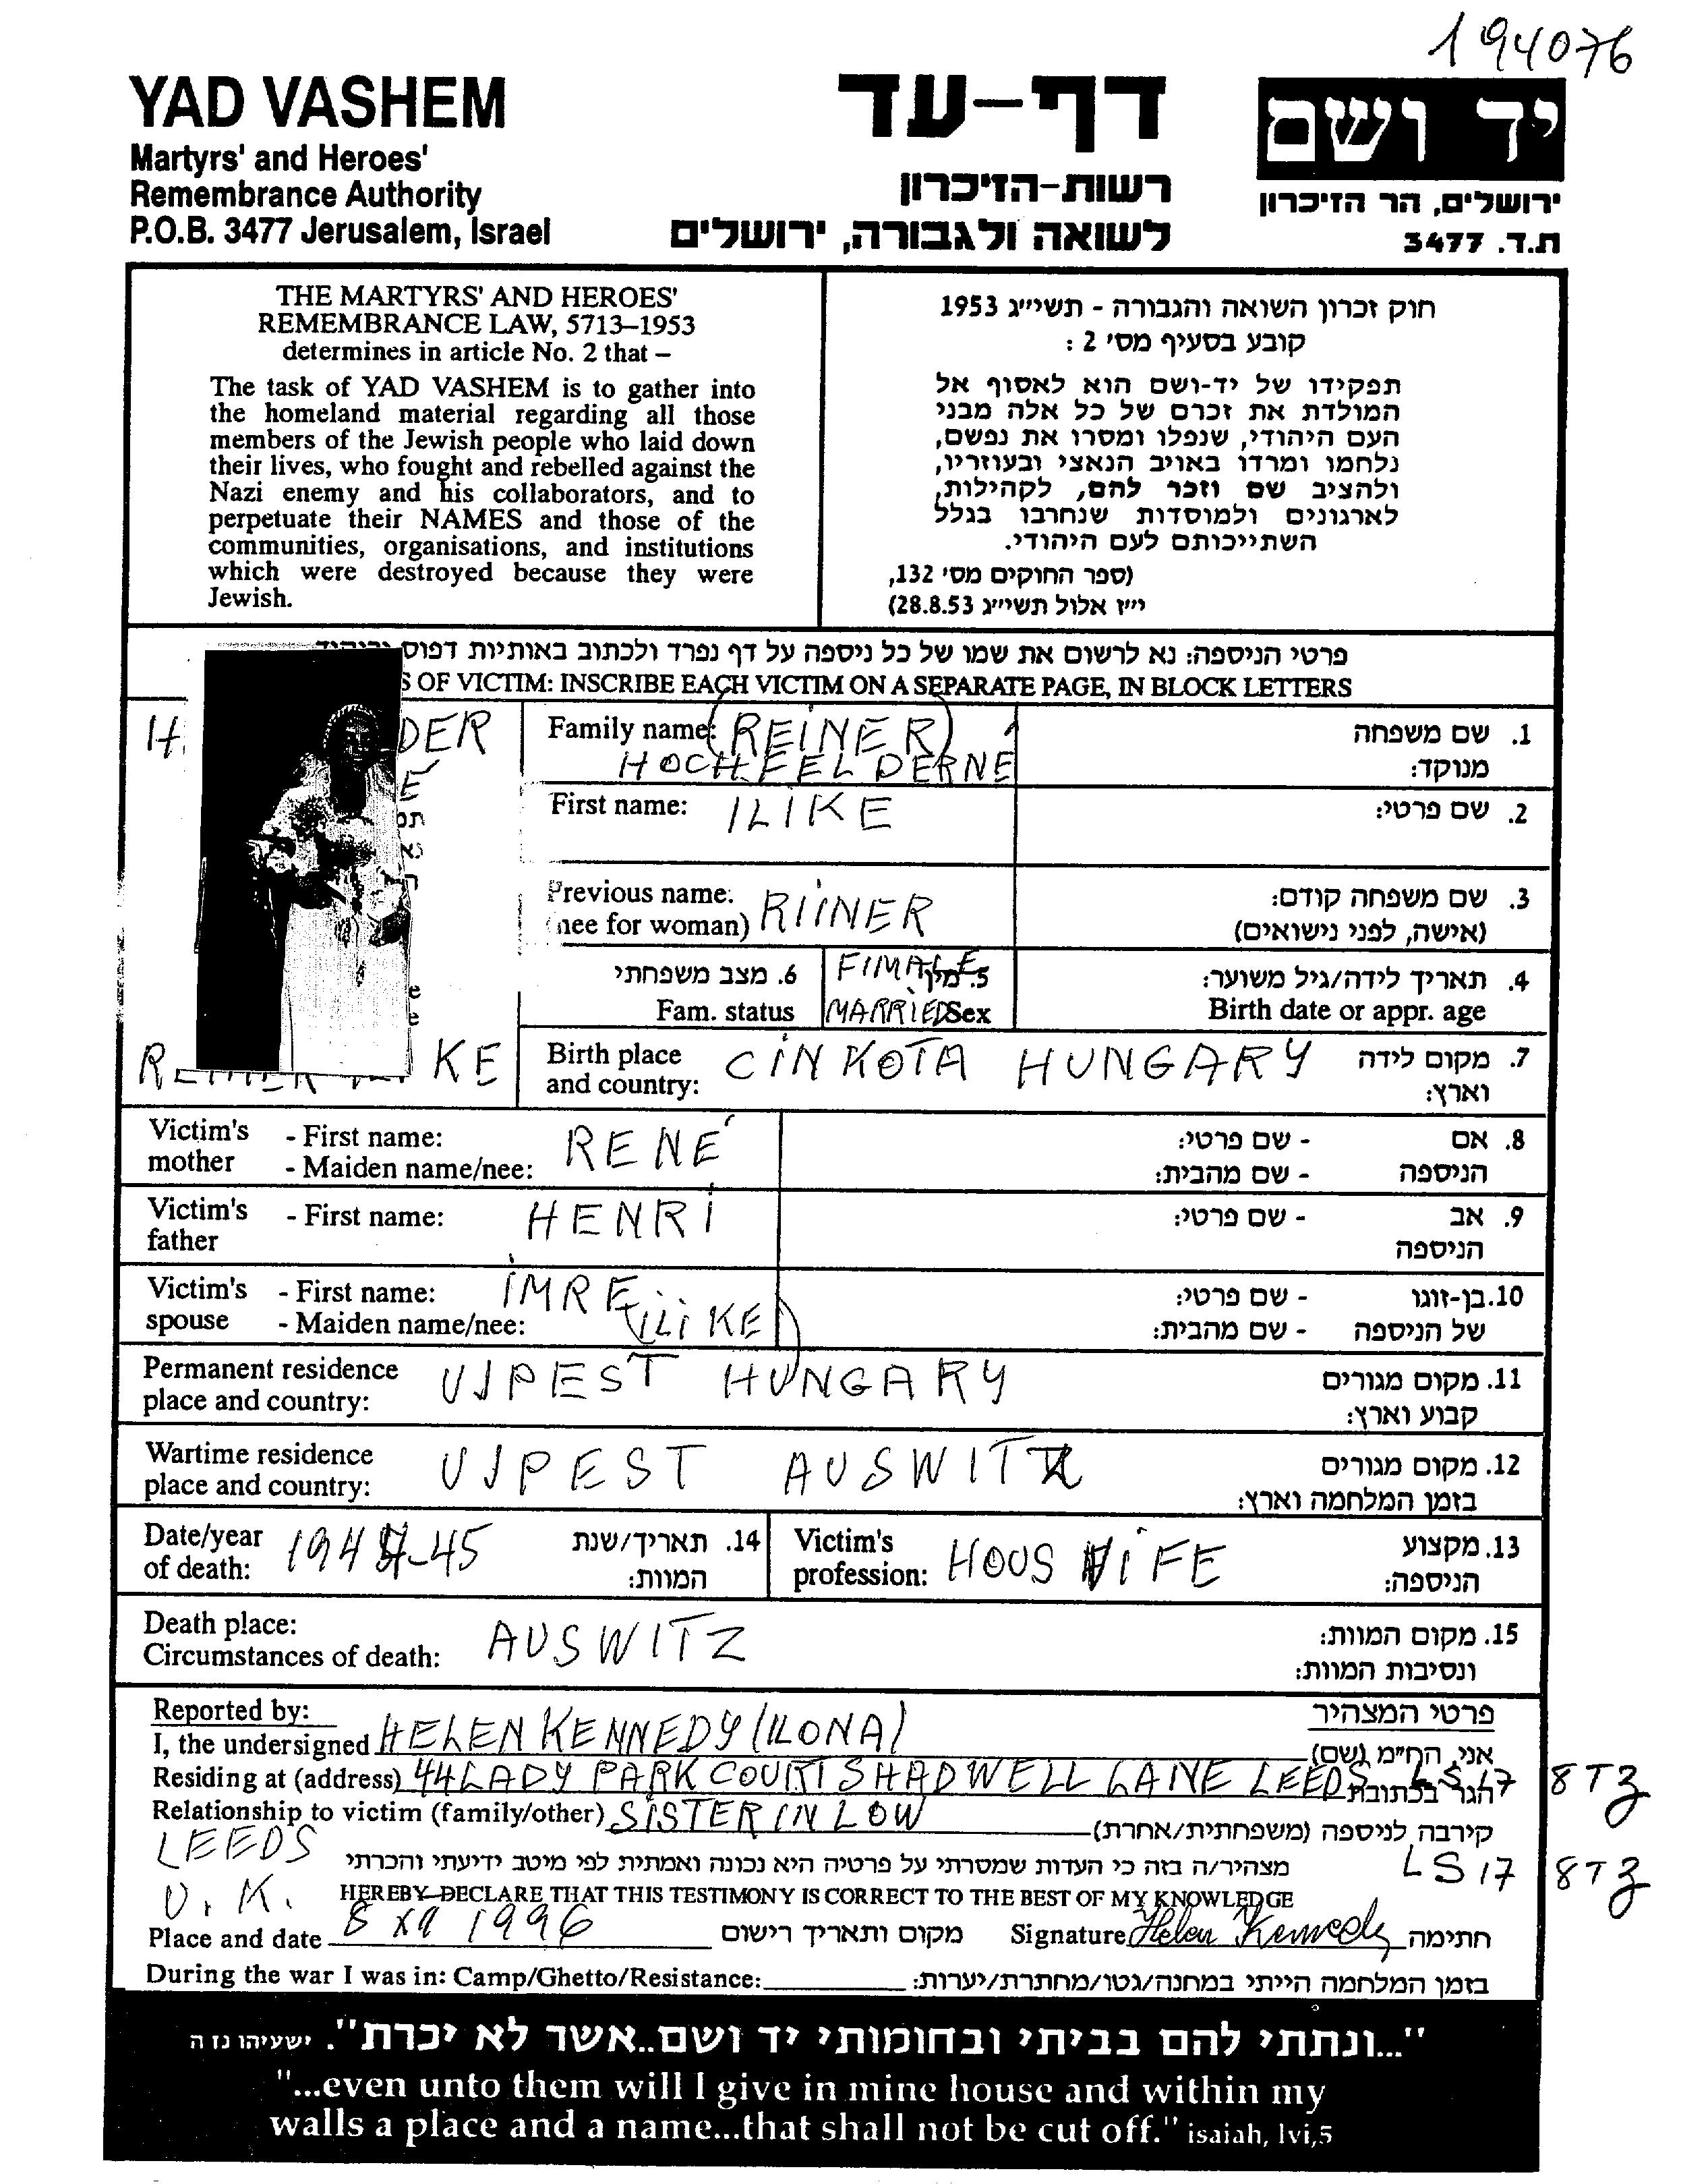 194076
YAD VASHEM
Martyrs' and Heroes'
Remembrance Authority
P.O.B. 3477 Jerusalem, Israel
דף-עד
רשות-הזיכרון
לשואה ולגבורה, ירושלים
יד ושם
ירושלים, הר הזיכרון
ת.ד. 3477
THE MARTYRS' AND HEROES'
REMEMBRANCE LAW, 5713–1953
determines in article No. 2 that –
The task of YAD VASHEM is to gather into
the homeland material regarding all those
members of the Jewish people who laid down
their lives, who fought and rebelled against the
Nazi enemy and his collaborators, and to
perpetuate their NAMES and those of the
communities, organisations, and institutions
which were destroyed because they were
Jewish.
חוק זכרון השואה והגבורה - תשי״ג 1953
קובע בסעיף מס' 2 :
תפקידו של יד-ושם הוא לאסוף אל
המולדת את זכרם של כל אלה מבני
העם היהודי, שנפלו ומסרו את נפשם,
נלחמו ומרדו באויב הנאצי ובעוזריו,
ולהציב שם וזכר להם, לקהילות,
לארגונים ולמוסדות שנחרבו בגלל
השתייכותם לעם היהודי.
(ספר החוקים מס' 132,
י״ז אלול תשי״ג 28.8.53)
פרטי הניספה: נא לרשום את שמו של כל ניספה על דף נפרד ולכתוב באותיות דפוס
S OF VICTIM: INSCRIBE EACH VICTIM ON A SEPARATE PAGE, IN BLOCK LETTERS
H DER
E
Family name: (REINER)
HOCHFELDERNE
1. שם משפחה
מנוקד:
First name: ILIKE
2. שם פרטי:
Previous name: RIINER
(nee for woman)
3. שם משפחה קודם:
(אישה, לפני נישואים)
6. מצב משפחתי
Fam. status
FIMALE 5. מין
MARRIED Sex
4. תאריך לידה/גיל משוער:
Birth date or appr. age
KE
Birth place
and country: CINKOTA HUNGARY
7. מקום לידה
וארץ:
Victim's mother - First name: RENÉ
- Maiden name/nee:
8. אם הניספה - שם פרטי:
- שם מהבית:
Victim's father - First name: HENRI
9. אב הניספה - שם פרטי:
Victim's spouse - First name: IMRE
- Maiden name/nee: (ILIKE)
10. בן-זוגו של הניספה - שם פרטי:
- שם מהבית:
Permanent residence
place and country: UJPEST HUNGARY
11. מקום מגורים
קבוע וארץ:
Wartime residence
place and country: UJPEST AUSWITZ
12. מקום מגורים
בזמן המלחמה וארץ:
Date/year
of death: 1944-45
14. תאריך/שנת
המוות:
Victim's
profession: HOUSWIFE
13. מקצוע
הניספה:
Death place:
Circumstances of death: AUSWITZ
15. מקום המוות:
ונסיבות המוות:
Reported by:
פרטי המצהיר
I, the undersigned HELEN KENNEDY (ILONA)
אני, הח״מ (שם)
Residing at (address) 44 LADY PARK COURT SHADWELL LANE LEEDS LS17 8TZ
הגר בכתובת
Relationship to victim (family/other) SISTER IN LOW
קירבה לניספה (משפחתית/אחרת)
LEEDS
מצהיר/ה בזה כי העדות שמסרתי על פרטיה היא נכונה ואמתית לפי מיטב ידיעתי והכרתי
LS17 8TZ
U.K.
HEREBY DECLARE THAT THIS TESTIMONY IS CORRECT TO THE BEST OF MY KNOWLEDGE
Place and date 8 1996
מקום ותאריך רישום
Signature Helen Kennedy חתימה
During the war I was in: Camp/Ghetto/Resistance:
בזמן המלחמה הייתי במחנה/גטו/מחתרת/יערות:
"...ונתתי להם בביתי ובחומותי יד ושם..אשר לא יכרת". ישעיהו נז ה
"...even unto them will I give in mine house and within my
walls a place and a name...that shall not be cut off." isaiah, lvi,5